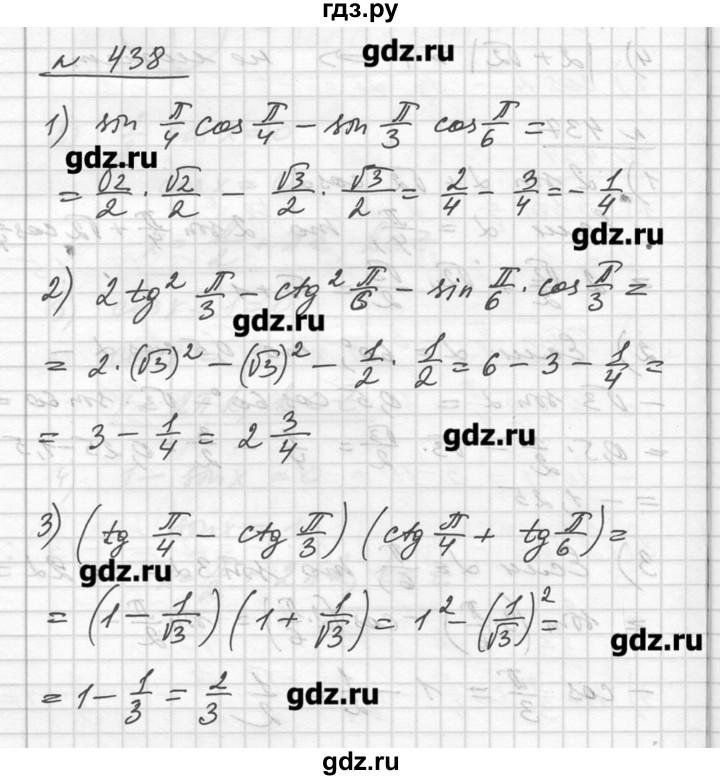 гдз.ру
№ 438
gdz.ru
1) sin π/4 cos π/4 − sin π/3 cos π/6 =
gdz.ru
= √2/2 · √2/2 − √3/2 · √3/2 = 2/4 − 3/4 = −1/4
gdz.ru
2) 2 tg² π/3 − ctg² π/6 − sin π/6 · cos π/3 =
gdz.ru
= 2·(√3)² − (√3)² − 1/2 · 1/2 = 6 − 3 − 1/4 =
= 3 − 1/4 = 2 3/4
gdz.ru
3) (tg π/4 − ctg π/3) (ctg π/4 + tg π/6) =
gdz.ru
= (1 − 1/√3) (1 + 1/√3) = 1² − (1/√3)² =
gdz.ru
= 1 − 1/3 = 2/3
gdz.ru
gdz.ru